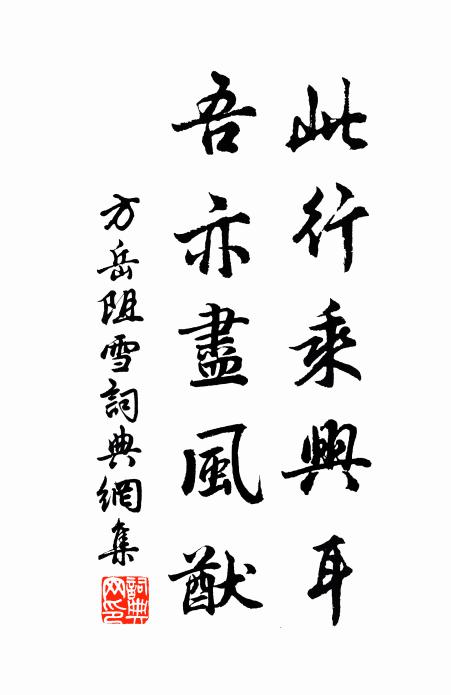 此行乘興耳
吾亦盡風猷
方岳阻雪詞典網集
詞典網印